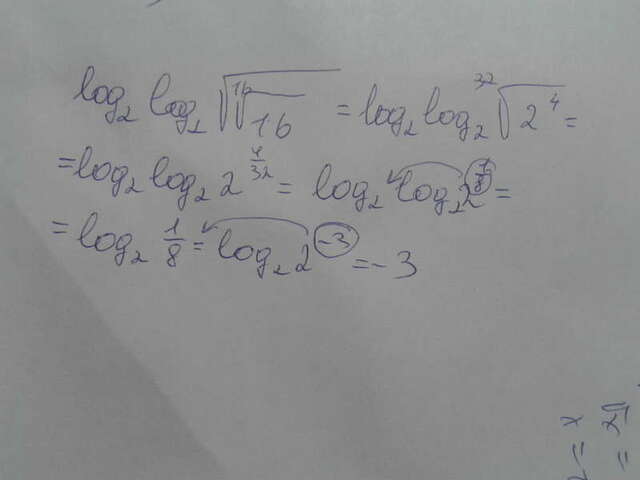 log₂ log₂ √ ¹⁶√16 = log₂ log₂ ³²√2⁴ =
= log₂ log₂ 2^(4/32) = log₂ log₂ 2^(1/8) =
= log₂ 1/8 = log₂ 2^(-3) = -3